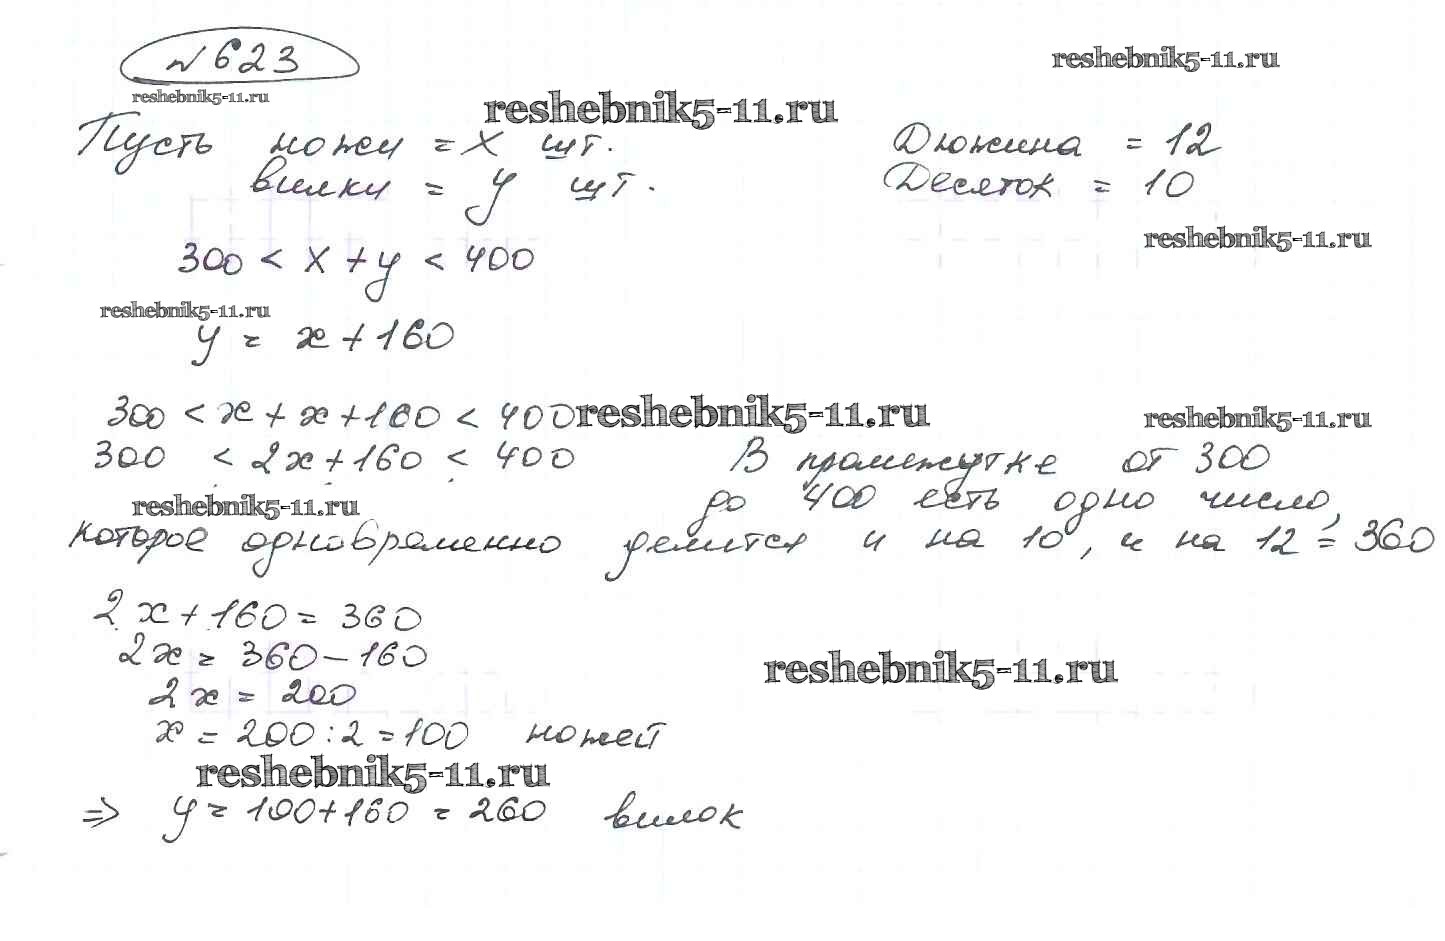 № 623
reshebnik5-11.ru
reshebnik5-11.ru
reshebnik5-11.ru
Пусть ножи = х шт.
вилки = у шт.
Дюжина = 12
Десяток = 10
reshebnik5-11.ru
300 < х + у < 400
reshebnik5-11.ru
у = х + 160
300 < х + х + 160 < 400
reshebnik5-11.ru
reshebnik5-11.ru
300 < 2х + 160 < 400
В промежутке от 300
reshebnik5-11.ru
до 400 есть одно число,
которое одновременно делится и на 10, и на 12 = 360
2х + 160 = 360
2х = 360 - 160
reshebnik5-11.ru
2х = 200
х = 200 : 2 = 100 ножей
reshebnik5-11.ru
=> у = 100 + 160 = 260 вилок